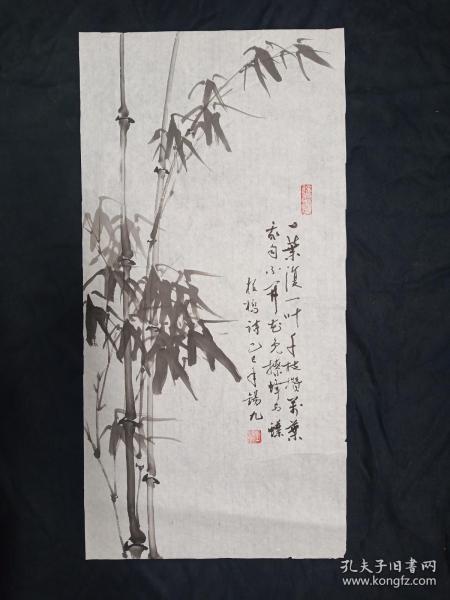 一葉復一叶千枝攒萬葉
我自不开花免撩蜂与蝶
板橋诗乙巳年錫九
孔夫子旧书网
www.kongfz.com